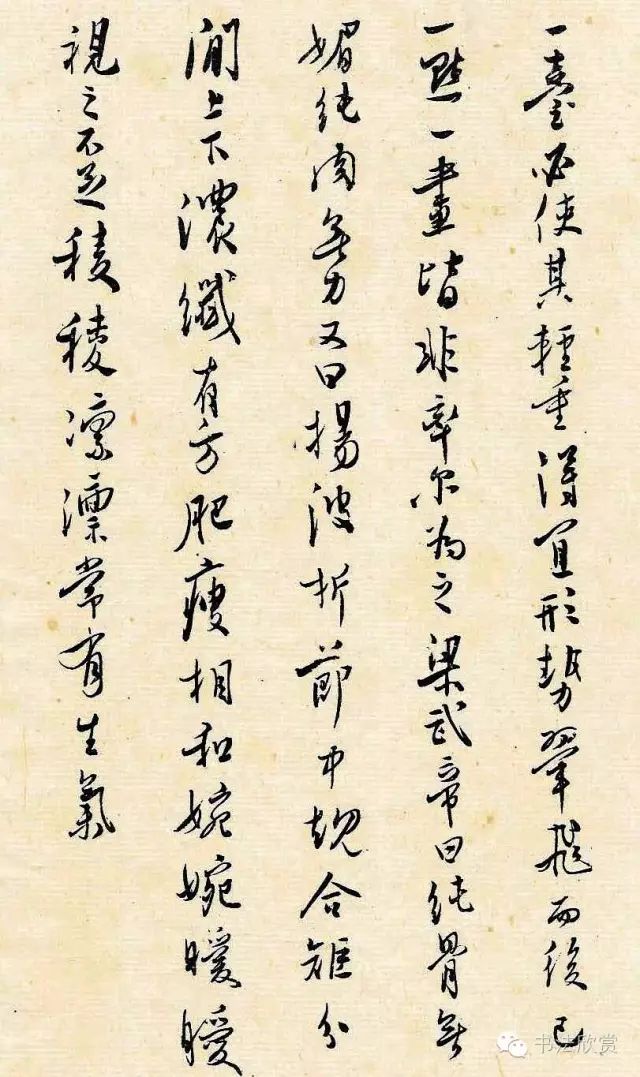 一臺必使其輕重得宜形勢翬飛而後已
一點一畫皆非率尔為之梁武帝曰純骨無
媚純肉無力又曰揚波折節中規合矩分
間上下濃纖有方肥瘦相和婉婉曖曖
視之不足稜稜凛凛常有生氣
书法欣赏